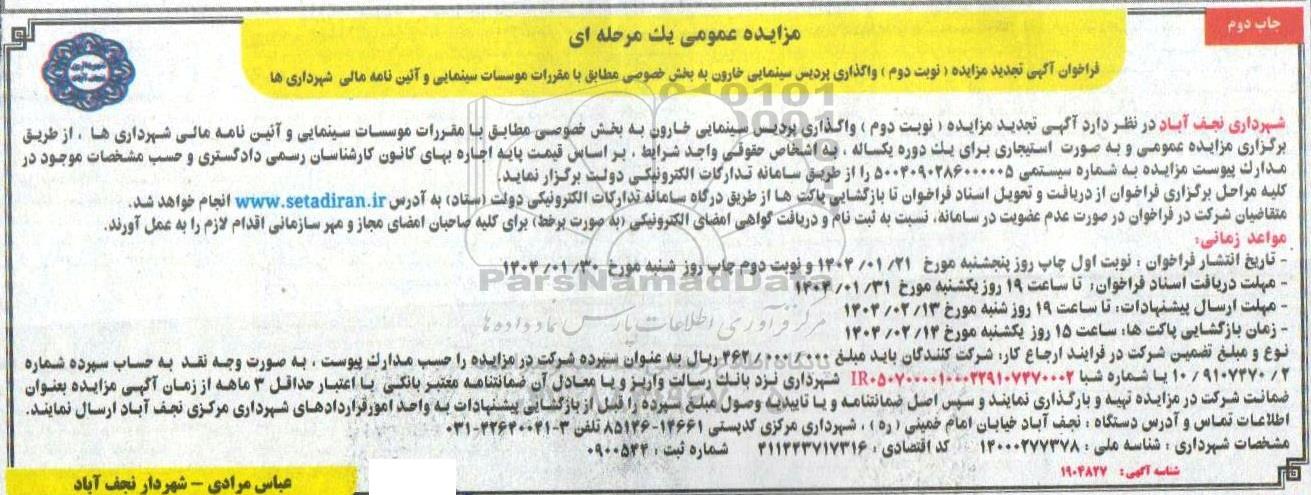 چاپ دوم
مزایده عمومی یک مرحله ای
فراخوان آگهی تجدید مزایده ( نوبت دوم ) واگذاری پردیس سینمایی خارون به بخش خصوصی مطابق با مقررات موسسات سینمایی و آئین نامه مالی شهرداری ها
شهرداری نجف آباد در نظر دارد آگهی تجدید مزایده ( نوبت دوم ) واگذاری پردیس سینمایی خارون به بخش خصوصی مطابق با مقررات موسسات سینمایی و آئین نامه مالی شهرداری ها ، از طریق
برگزاری مزایده عمومی و به صورت استیجاری برای یك دوره یکساله ، به اشخاص حقوقی واجد شرایط ، بر اساس قیمت پایه اجاره بهای کانون کارشناسان رسمی دادگستری و حسب مشخصات موجود در
مدارك پیوست مزایده به شماره سیستمی ۵۰۰۴۰۹۰۲۸۶۰۰۰۰۰۵ را از طریق سامانه تدارکات الکترونیکی دولت برگزار نماید.
کلیه مراحل برگزاری فراخوان از دریافت و تحویل اسناد فراخوان تا بازگشایی پاکت ها از طریق درگاه سامانه تدارکات الکترونیکی دولت (ستاد) به آدرس www.setadiran.ir انجام خواهد شد.
متقاضیان شرکت در فراخوان در صورت عدم عضویت در سامانه، نسبت به ثبت نام و دریافت گواهی امضای الکترونیکی (به صورت برخط) برای کلیه صاحبان امضای مجاز و مهر سازمانی اقدام لازم را به عمل آورند.
مواعد زمانی:
- تاریخ انتشار فراخوان : نوبت اول چاپ روز پنجشنبه مورخ ۱۴۰۴/۰۱/۲۱ و نوبت دوم چاپ روز شنبه مورخ ۱۴۰۴/۰۱/۳۰
- مهلت دریافت اسناد فراخوان: تا ساعت ۱۹ روز یکشنبه مورخ ۱۴۰۴/۰۱/۳۱
- مهلت ارسال پیشنهادات: تا ساعت ۱۹ روز شنبه مورخ ۱۴۰۴/۰۲/۱۳
- زمان بازگشایی پاکت ها: ساعت ۱۵ روز یکشنبه مورخ ۱۴۰۴/۰۲/۱۴
نوع و مبلغ تضمین شرکت در فرایند ارجاع کار: شرکت کنندگان باید مبلغ ۴۶۲/۰۰۰/۰۰۰ ریال به عنوان سپرده شرکت در مزایده را حسب مدارك پیوست ، به صورت وجه نقد به حساب سپرده شماره
۱۰/۹۱۰۷۴۷۰/۲ یا شماره شبا IR۰۵۰۷۰۰۰۰۱۰۰۰۲۲۹۱۰۷۴۷۰۰۰۲ شهرداری نزد بانك رسالت واریز و یا معادل آن ضمانتنامه معتبر بانکی با اعتبار حداقل ۳ ماهه از زمان آگهی مزایده بعنوان
ضمانت شرکت در مزایده تهیه و بارگذاری نمایند و سپس اصل ضمانتنامه و یا تاییدیه وصول مبلغ سپرده را قبل از بازگشایی پیشنهادات به واحد امور قراردادهای شهرداری مرکزی نجف آباد ارسال نمایند.
اطلاعات تماس و آدرس دستگاه : نجف آباد خیابان امام خمینی (ره) ، شهرداری مرکزی کدپستی ۱۴۶۶۱-۸۵۱۴۶ تلفن ۳-۴۲۶۴۰۰۴۱-۰۳۱
مشخصات شهرداری : شناسه ملی : ۱۴۰۰۰۲۷۷۳۷۸ کد اقتصادی : ۴۱۱۳۴۳۷۱۷۳۱۶ شماره ثبت : ۰۹۰۰۵۴۴
شناسه آگهی: ۱۹۰۴۸۲۷
عباس مرادی - شهردار نجف آباد
ParsNamadData